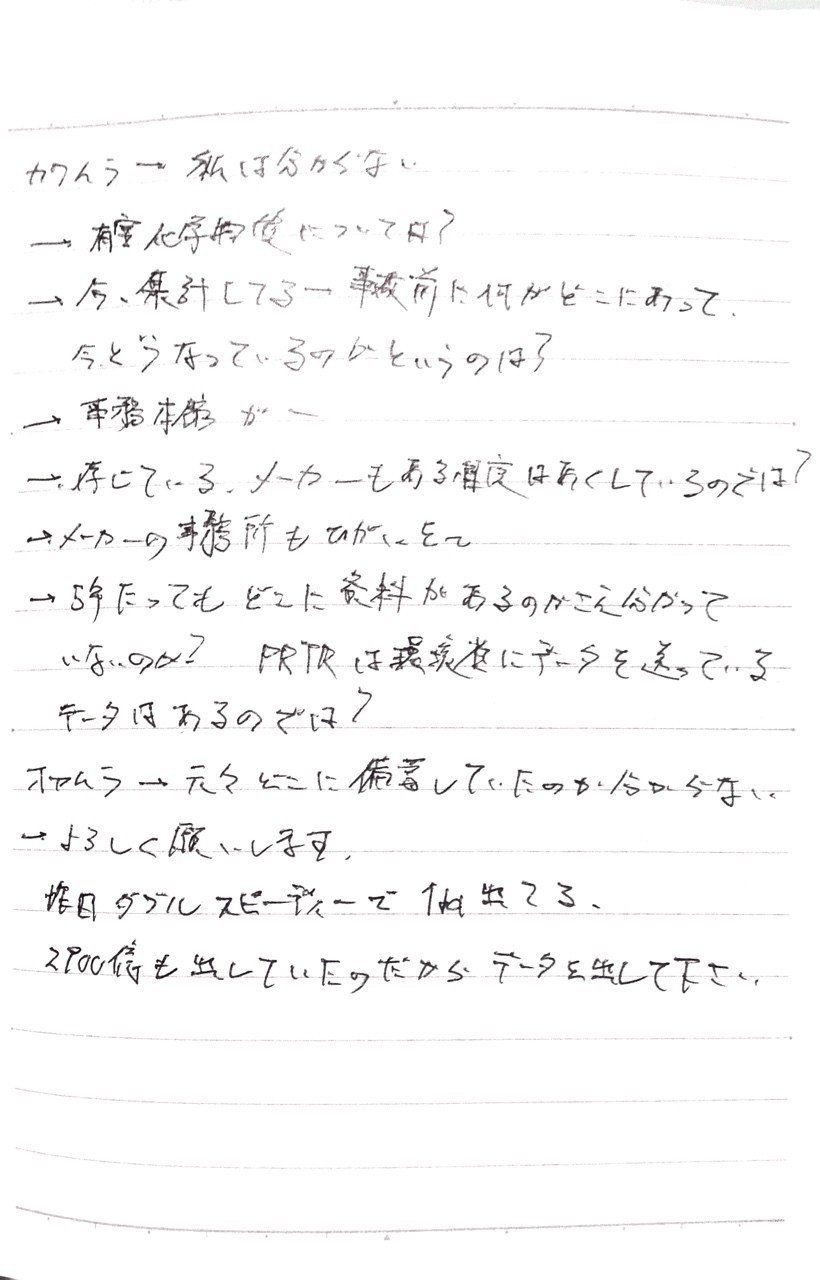 カワムラ → 私は分からない
→ 有害化学物質については?
→ 今、集計してる → 事故前に何がどこにあって、
今どうなっているのかというのは?
→ 事務本館がー
→ 存じている、メーカーもある程度はあくしているのでは?
→ メーカーの事務所もひがいを
→ 5年たってもどこに資料があるのかさえ分かって
いないのか? PRTRは環境省にデータを送っている
データはあるのでは?
→ 元々どこに備蓄していたのか分からない、
→ よろしく願いします。
昨日ダブルスピーディーで 出てる、
億も出していたのだからデータを出して下さい、